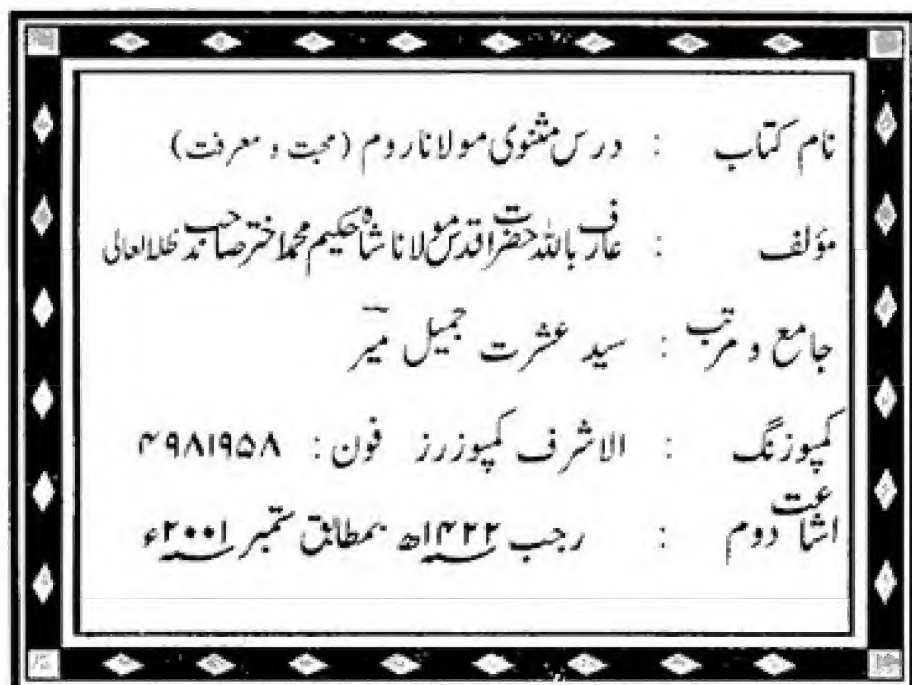 نام کتاب : درس مثنوی مولانا روم (محبت و معرفت)
مؤلف : عارف باللہ حضرت اقدس مولانا شاہ حکیم محمد اختر صاحب مدظلہ العالی
جامع و مرتب : سید عشرت جمیل میر
کمپوزنگ : الاشرف کمپوزرز فون : ۴۹۸۱۹۵۸
اشاعت دوم : رجب ۱۴۲۲ھ بمطابق ستمبر ۲۰۰۱ء